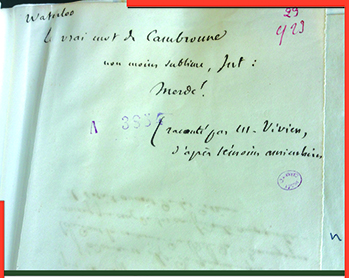 Waterloo
29
le vrai mot de Cambronne
923
non moins sublime, fut :
Merde !
N 3
(raconté par M. Vivien,
d'après témoins auriculaires